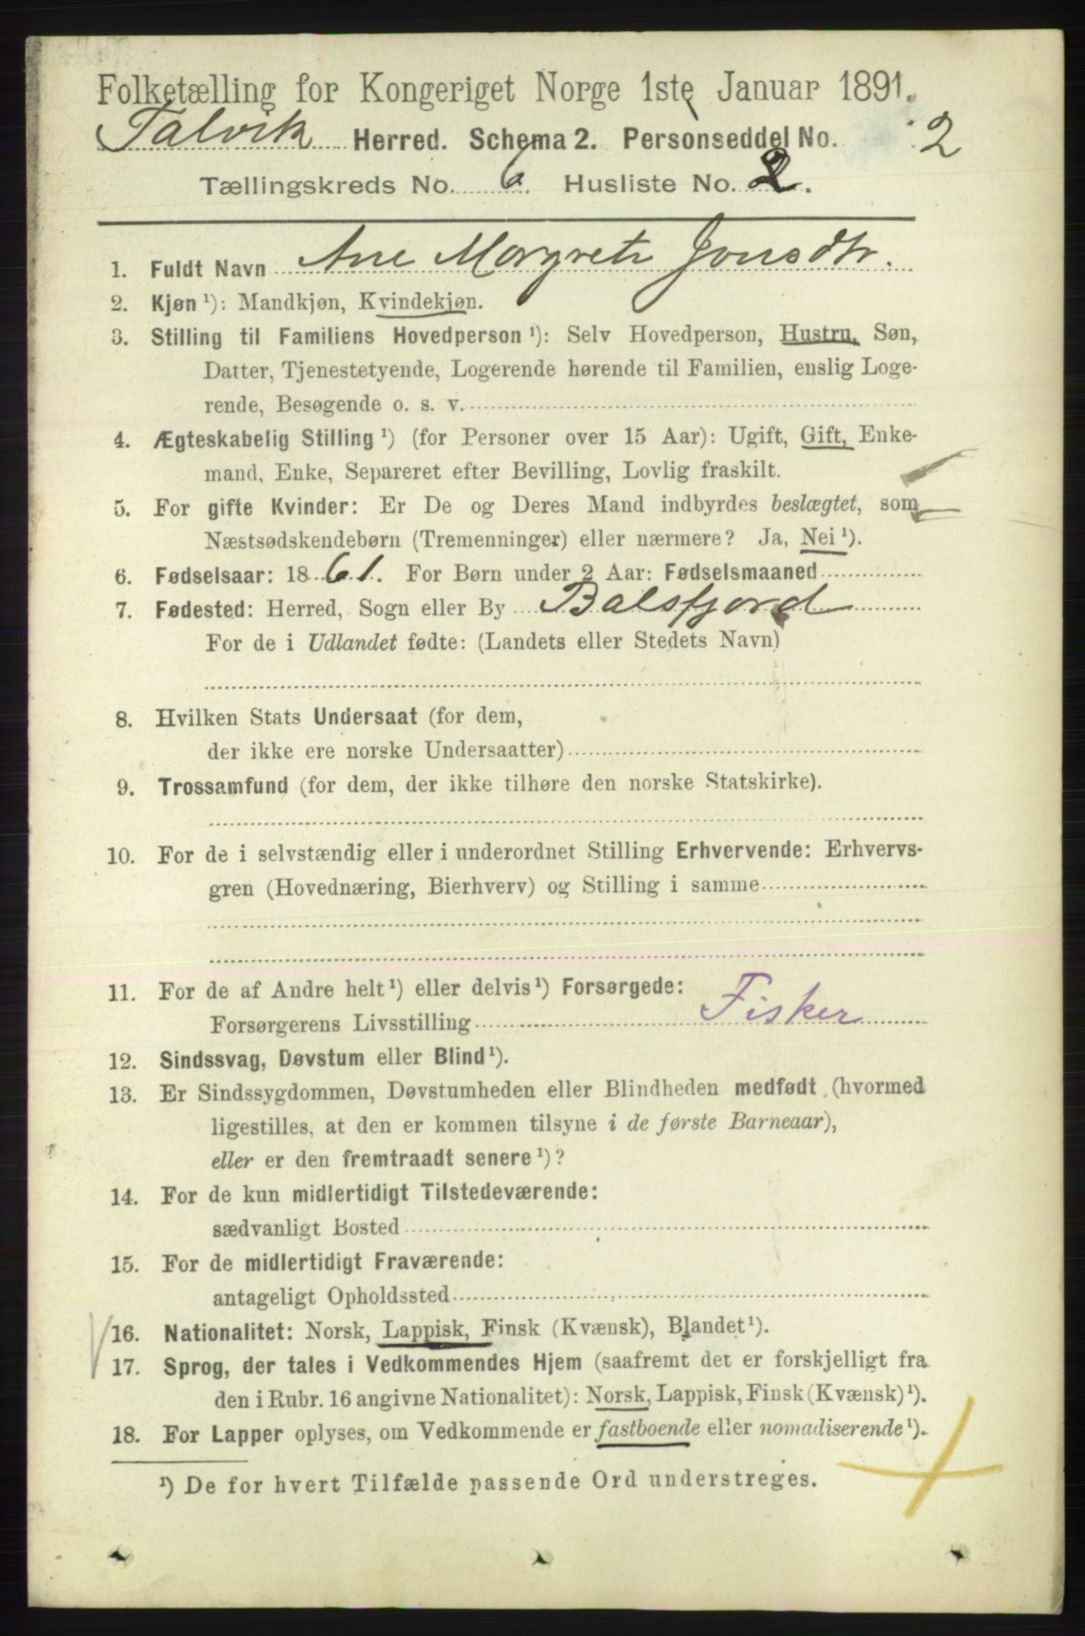 Folketælling for Kongeriget Norge 1ste Januar 1891.
Talvik Herred. Schema 2. Personseddel No. 2
Tællingskreds No. 6 Husliste No. 2.
1. Fuldt Navn Ane Margrete Jonsdtr.
2. Kjøn ¹): Mandkjøn, Kvindekjøn.
3. Stilling til Familiens Hovedperson ¹): Selv Hovedperson, Hustru, Søn,
Datter, Tjenestetyende, Logerende hørende til Familien, enslig Loge-
rende, Besøgende o. s. v.
4. Ægteskabelig Stilling ¹) (for Personer over 15 Aar): Ugift, Gift, Enke-
mand, Enke, Separeret efter Bevilling, Lovlig fraskilt.
5. For gifte Kvinder: Er De og Deres Mand indbyrdes beslægtet, som
Næstsødskendebørn (Tremenninger) eller nærmere? Ja, Nei ¹).
6. Fødselsaar: 1861. For Børn under 2 Aar: Fødselsmaaned
7. Fødested: Herred, Sogn eller By Balsfjord
For de i Udlandet fødte: (Landets eller Stedets Navn)
8. Hvilken Stats Undersaat (for dem,
der ikke ere norske Undersaatter)
9. Trossamfund (for dem, der ikke tilhøre den norske Statskirke).
10. For de i selvstændig eller i underordnet Stilling Erhvervende: Erhvervs-
gren (Hovednæring, Bierhverv) og Stilling i samme
11. For de af Andre helt ¹) eller delvis ¹) Forsørgede:
Forsørgerens Livsstilling Fisker
12. Sindssvag, Døvstum eller Blind ¹).
13. Er Sindssygdommen, Døvstumheden eller Blindheden medfødt (hvormed
ligestilles, at den er kommen tilsyne i de første Barneaar),
eller er den fremtraadt senere ¹)?
14. For de kun midlertidigt Tilstedeværende:
sædvanligt Bosted
15. For de midlertidigt Fraværende:
antageligt Opholdssted
16. Nationalitet: Norsk, Lappisk, Finsk (Kvænsk), Blandet ¹).
17. Sprog, der tales i Vedkommendes Hjem (saafremt det er forskjelligt fra
den i Rubr. 16 angivne Nationalitet): Norsk, Lappisk, Finsk (Kvænsk) ¹).
18. For Lapper oplyses, om Vedkommende er fastboende eller nomadiserende ¹).
¹) De for hvert Tilfælde passende Ord understreges.